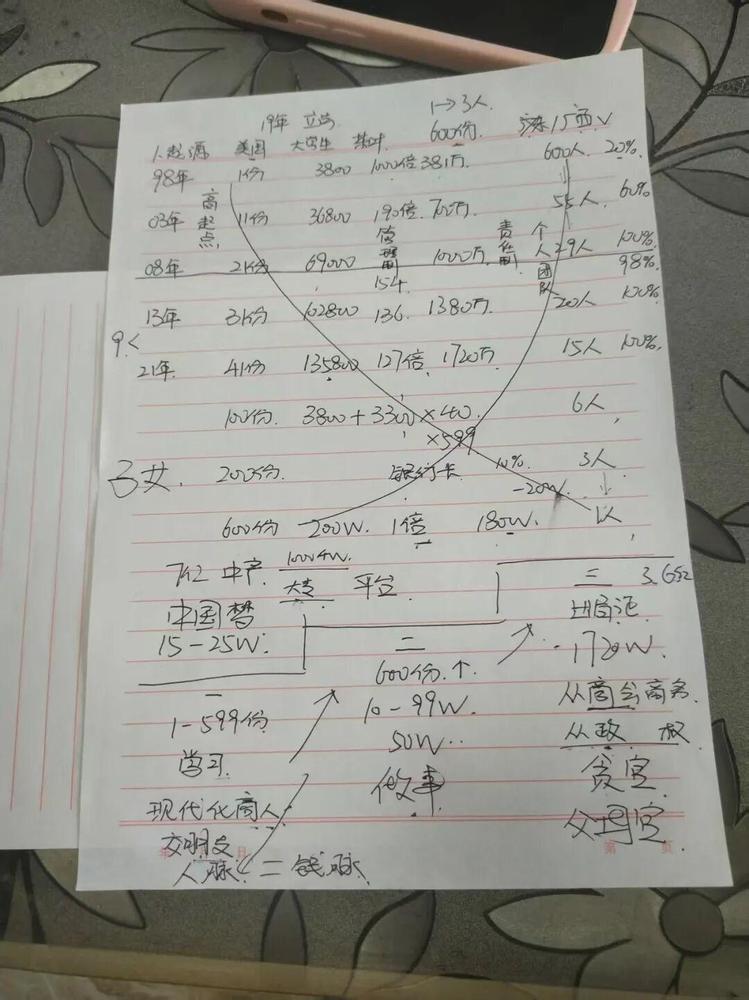 1→3人
19年 立
600份
1.起源 美国 大学生
98年 1份 3800 100倍 381万 600人 20%
高起点
03年 11份 36800 190倍 700万 55人 60%
管理制
责任制
个人团队
08年 21份 69000 1000万 29人 100%
98%
154
13年 31份 102800 136 1380万 20人 100%
9<
21年 41份 135800 127倍 1720万 15人 100%
100份 3800+3300×40 6人
×599
子女 200份 银行卡 10% 3人
-20W
600份 200W 1倍 180W 1人
7亿 中产 平台
大专
中国梦
15-25W
一
1-599份
学习
现代化商人
交朋友
人脉=钱脉
二
600份↑
10-99W
50W
做事
三
出局
1720W
从商 商务
从政 权
贪官
父母官
第 页
日